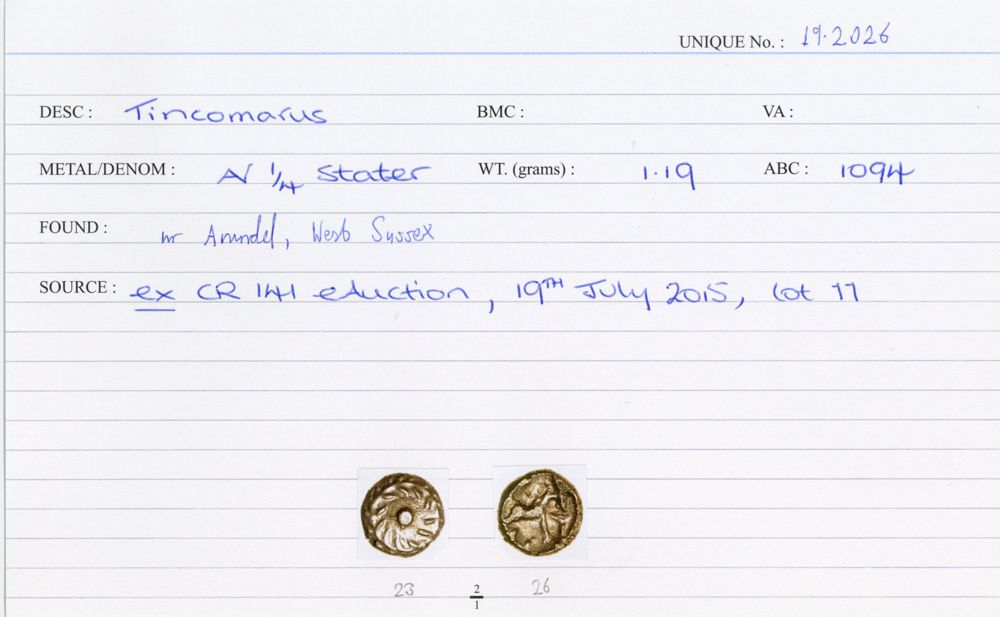 UNIQUE No. : 19.2026
DESC : Tincomarus BMC : VA :
METAL/DENOM : AV 1/4 Stater WT. (grams) : 1.19 ABC : 1094
FOUND : nr Arundel, West Sussex
SOURCE : ex CR 141 eAuction, 19TH July 2015, lot 11
23 2/1 26